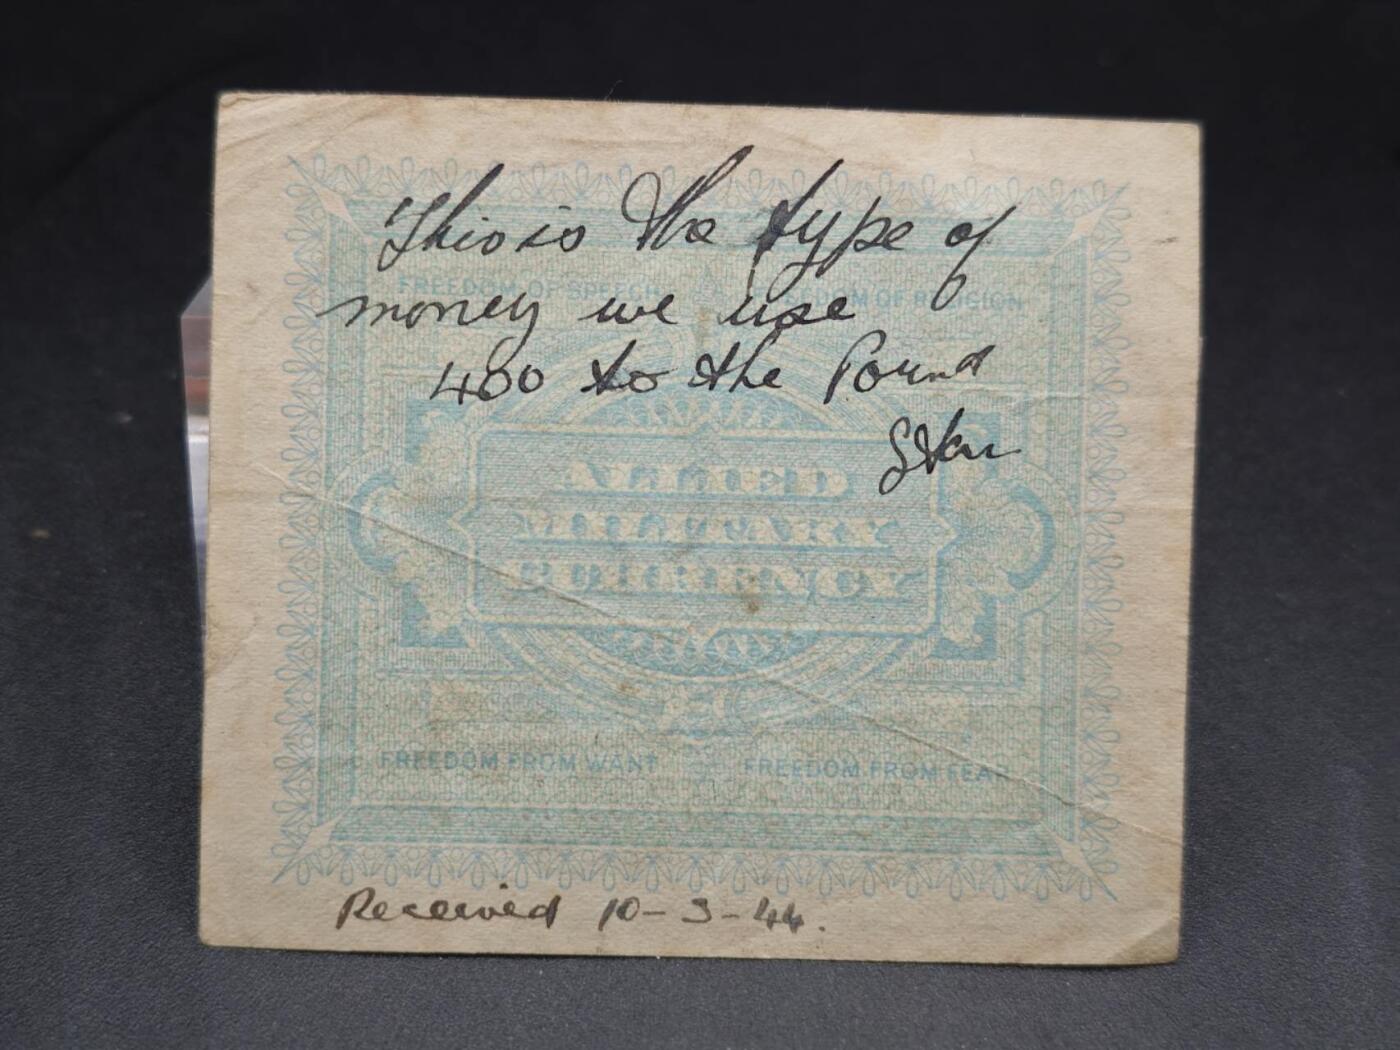 This is the type of
FREEDOM OF SPEECH FREEDOM OF RELIGION
money we use
400 to the Pound
Stan
ALLIED
MILITARY
CURRENCY
FREEDOM FROM WANT FREEDOM FROM FEAR
Received 10-3-44.